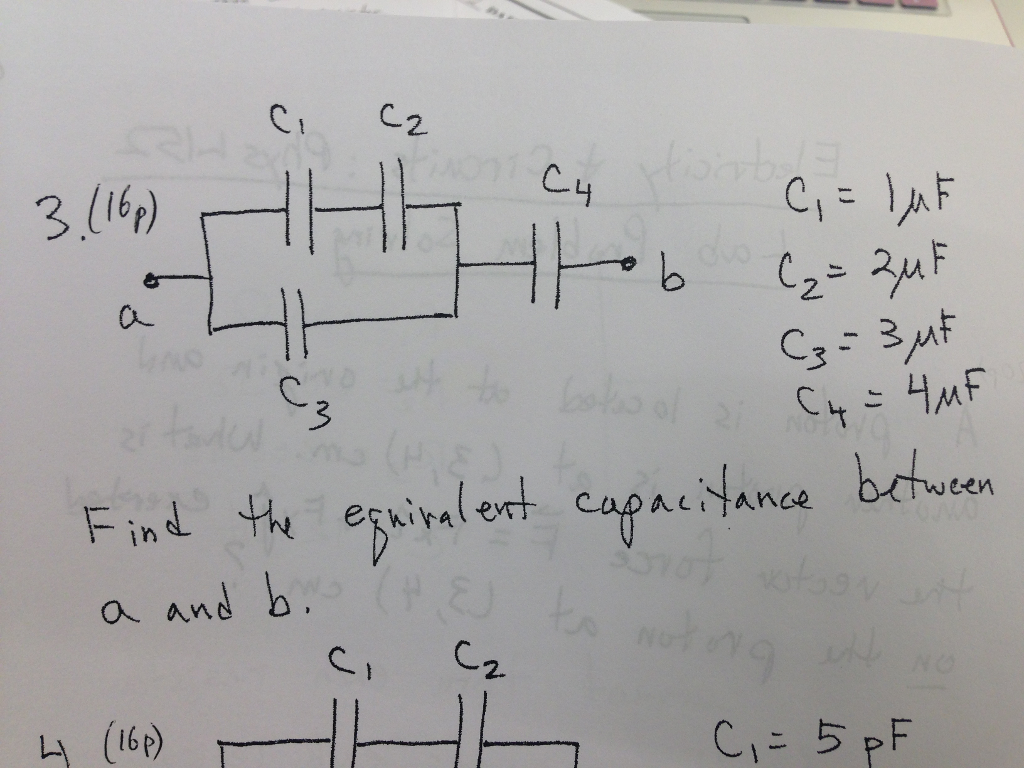 C₁ C₂
3.(16p)
C₄
a
b
C₃
C₁ = 1μF
C₂ = 2μF
C₃ = 3μF
C₄ = 4μF
Find the equivalent capacitance between
a and b.
C₁ C₂
4 (16p)
C₁ = 5 pF